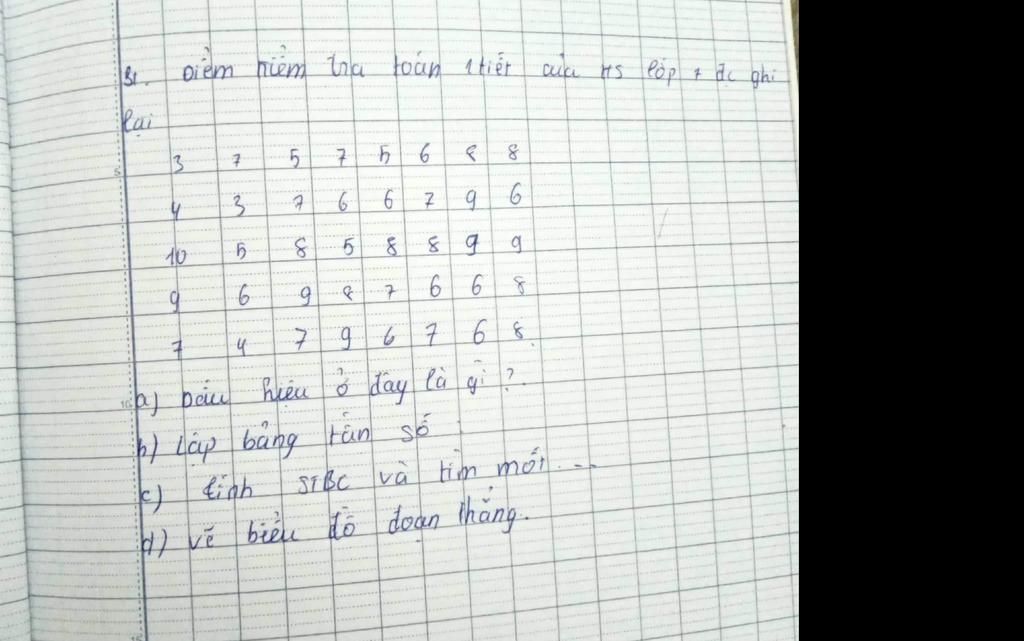 B1. Điểm kiểm tra toán 1 tiết của HS lớp 7 đc ghi
lại
3 7 5 7 5 6 8 8
4 3 7 6 6 7 9 6
10 5 8 5 8 8 9 9
9 6 9 8 7 6 6 8
7 4 7 9 6 7 6 8
a) Dấu hiệu ở đây là gì?
b) Lập bảng tần số
c) tính STBC và tìm mốt ...
d) vẽ biểu đồ đoạn thẳng.